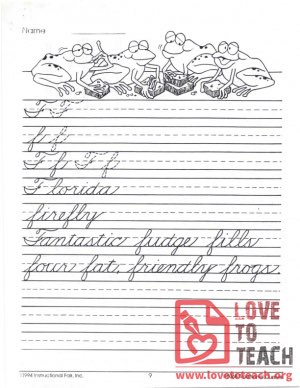 Name
F F
f f
F f F f
Florida
firefly
Fantastic fudge fills
four fat, friendly frogs.
LOVE
TO
TEACH
1994 Instructional Fair, Inc.
9
www.lovetoteach.org